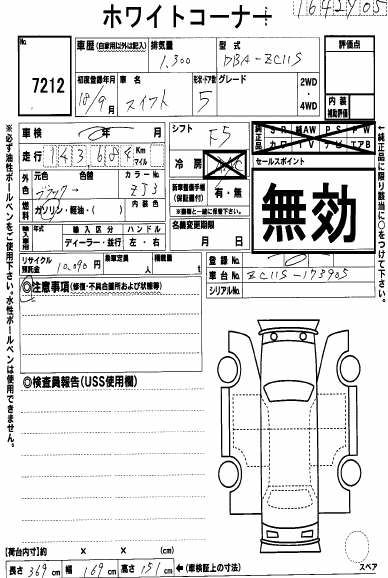 ホワイトコーナー
1642Y05
No.
7212
車歴 (自家用以外は記入)
排気量
型式
評価点
1,300
DBA-ZC11S
初度登録年月
車名
形状・ドア数
グレード
2WD
・
4WD
18/9月
スイフト
5
内装
補助評価
車検
年
月
シフト
F5
純正品
PS
純AW
PW
カワ
TV
ナビ
エアB
走行
143684
Km
マイル
冷房
セールスポイント
無効
外色
元色
色替
カラーNo.
ブラック
ZJ3
新車整備手帳
(保証書付)
有・無
※書類と一緒に保管下さい。
燃料
ガソリン・軽油・( )
内装色
名義変更期限
月
日
輸入車用
年式
輸入区分
ハンドル
ディーラー・並行
左・右
リサイクル
預託金
10,090円
乗車定員
人
積載量
t
登録No.
車台No.
ZC11S-178905
シリアルNo.
◎注意事項 (修復・不具合箇所および状態等)
◎検査員報告(USS使用欄)
※必ず油性ボールペンをご使用下さい。水性ボールペンは使用できません。
←純正品に限り該当に○をつけて下さい。
【荷台内寸】約
×
×
(cm)
長さ 369 cm
幅 169 cm
高さ 151 cm
←(車検証上の寸法)
スペア